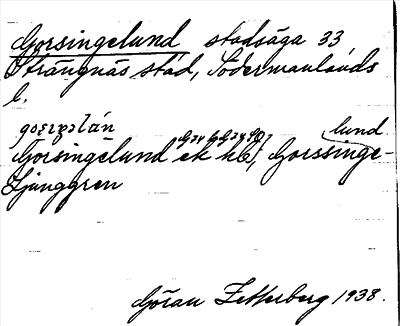 Gorsingelund stadsäga 33,
Strängnäs stad, Södermanlands
l.
lund
Gorsingelund ek kbl, Gorssinge-
Ljunggren
Göran Zetterberg 1938.